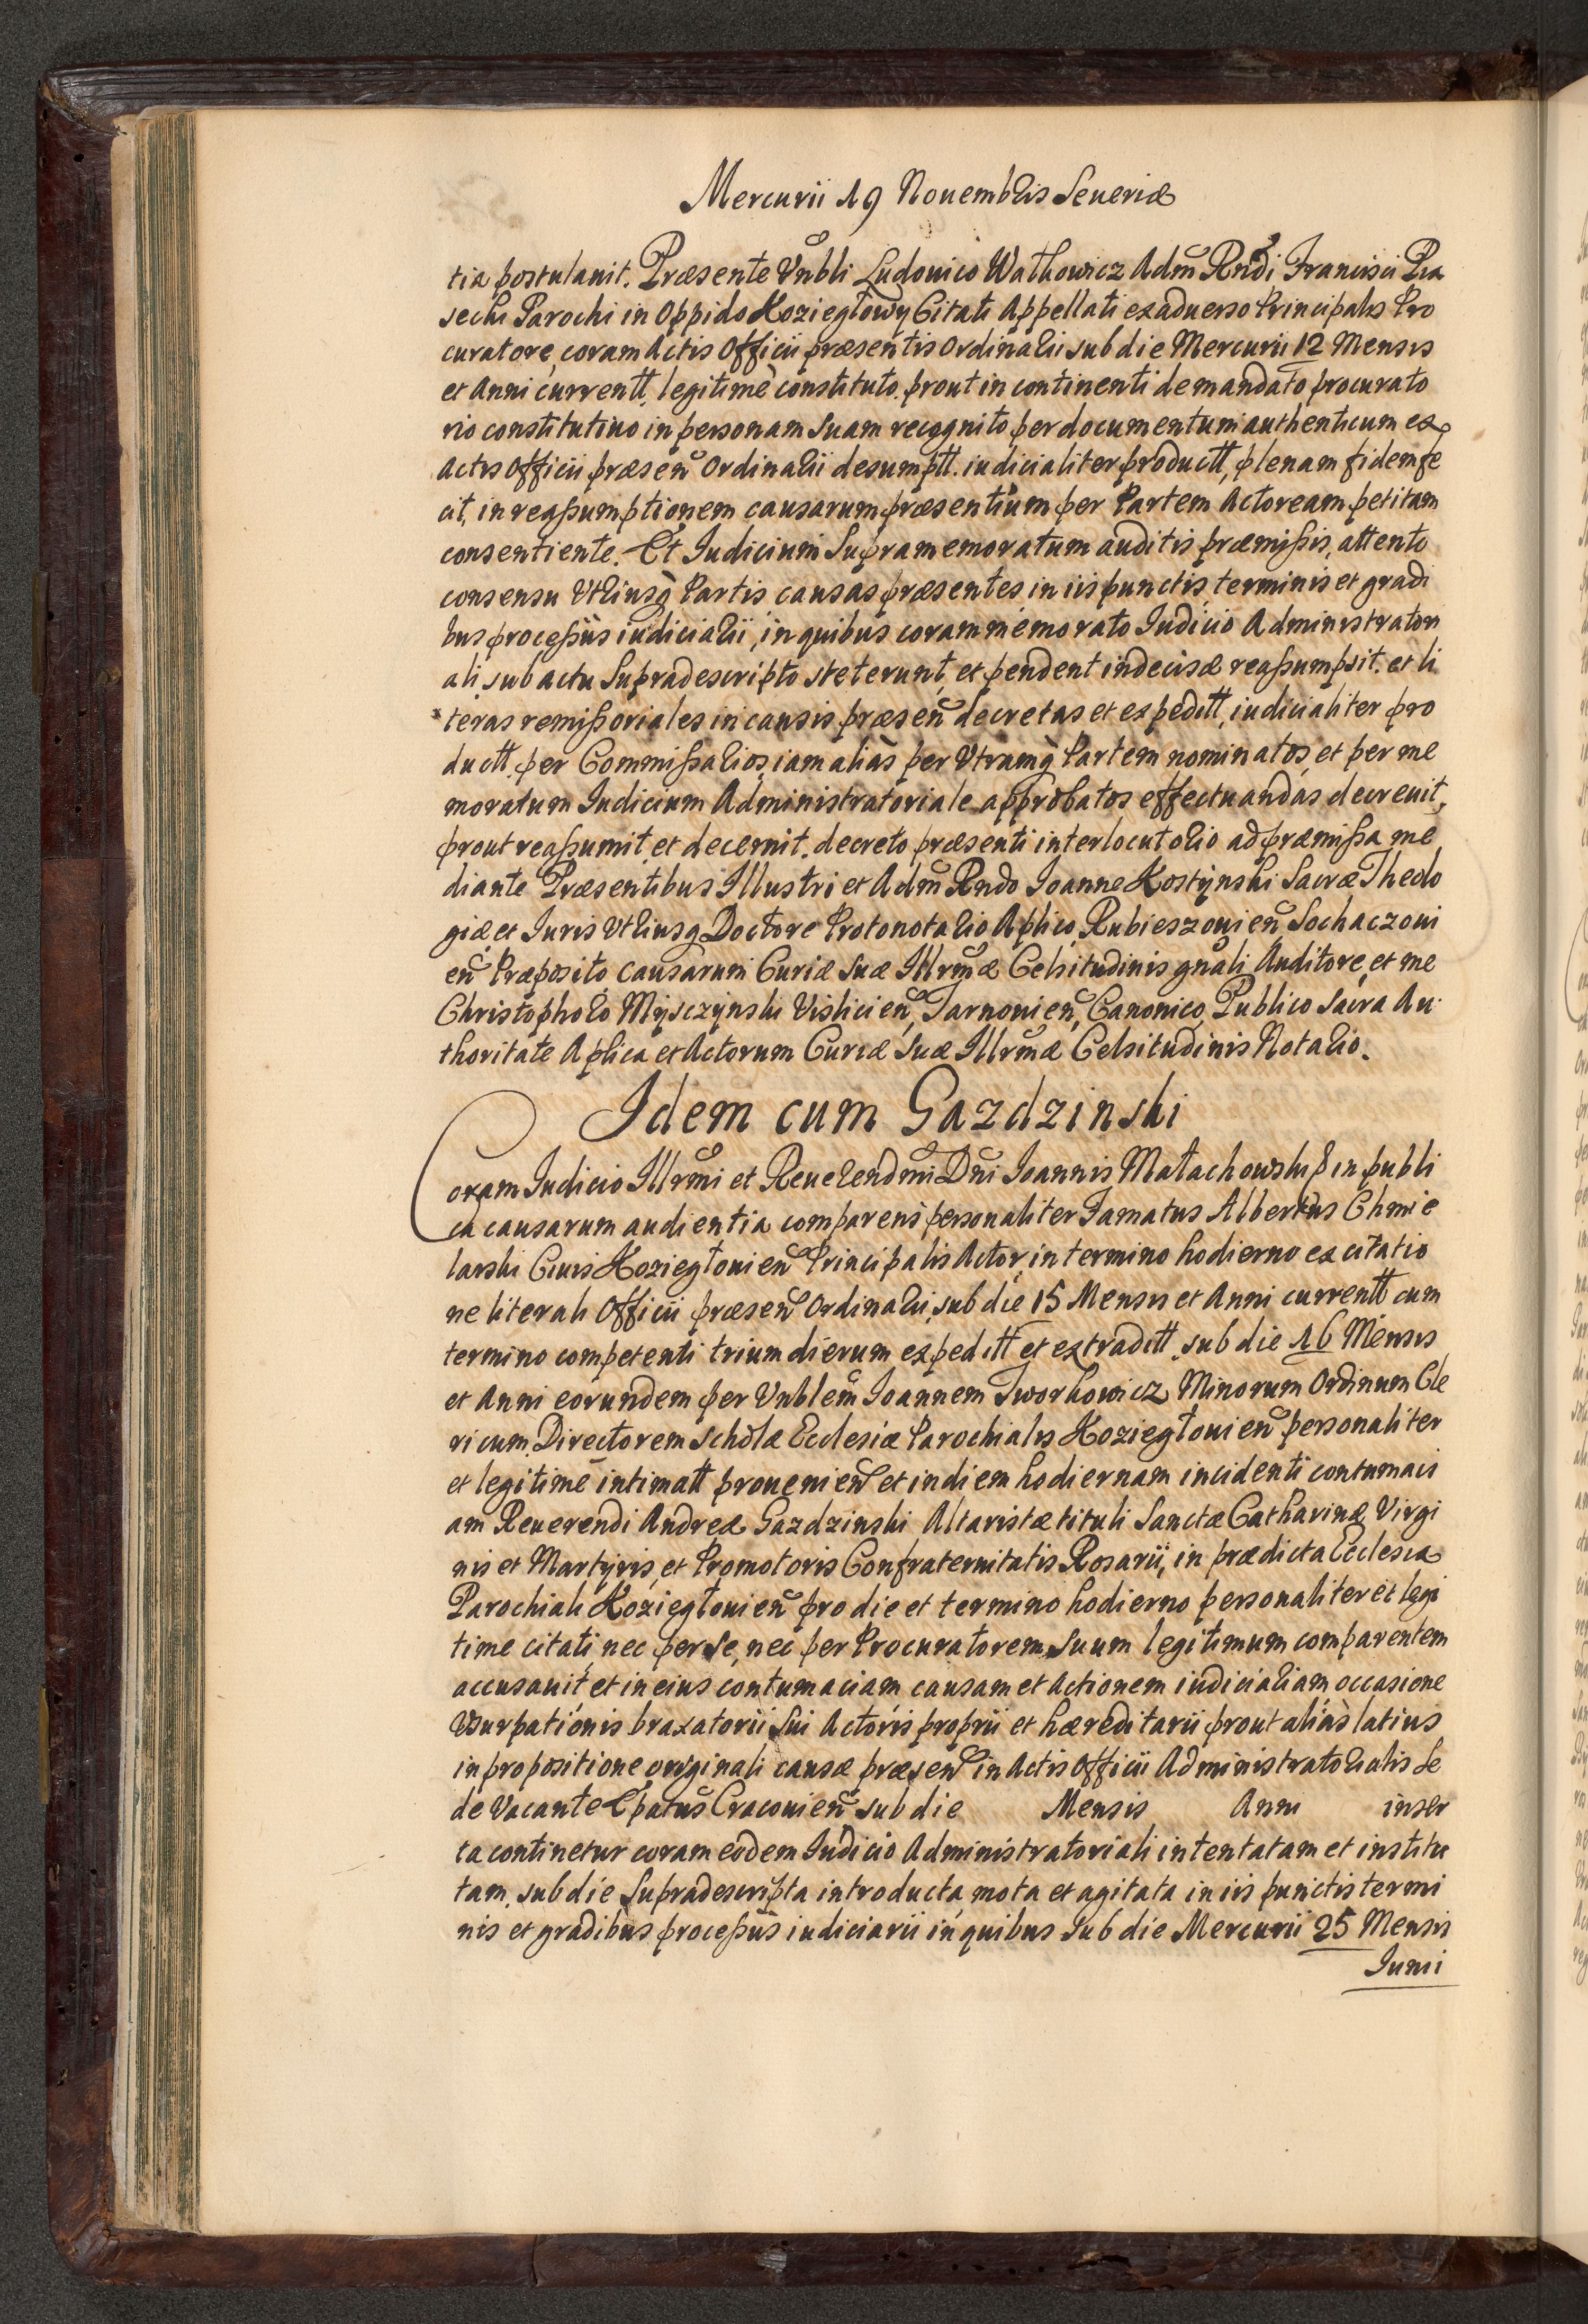 Mercurii 19 Nouembris Seueriæ
tia postulauit. Præsente Vnbli Ludouico Wathowicz Adm̃ Rndi Francisci Pia
secki Parochi in Oppido Koziegłowy Citati Appellati ex aduerso Principalis Pro
curatore, coram Actis Officii præsentis Ordinarii sub die Mercurii 12 Mensis
et Anni currentt, legitimè constituto. prout in continenti de mandato procurato
rio constitutiuo in personam suam recognito per documentum authenticum ex
Actis Officii præsen̄ Ordinarii desumptt. iudicialiter productt, plenam fidem fe
cit, in reaßumptionem causarum præsentium per Partem Actoream petitam
consentiente. Et Iudicium Supramemoratum auditis præmißis, attento
consensu Vtriusq̀ Partis causas præsentes in iis punctis, terminis et gradi
bus proceßus iudiciarii, in quibus coram memorato Iudicio Administratori
ali sub actu Supradescripto steterunt, et pendent indecisæ reaßumpsit. et li
teras remißoriales in causis præsen̄ decretas et expeditt, iudicialiter pro
ductt. per Commißarios, iam aliàs per Vtramq̀ Partem nominatos, et per me
moratum Iudicium Administratoriale approbatos effectuandas decreuit,
prout reaßumit, et decernit. decreto præsenti interlocutorio ad præmißa me
diante Præsentibus Illustri et Adm̃ Rndo Ioanne Kostÿnski Sacræ Theolo
giæ et Iuris Vtriusq Doctore Protonotario Aplico, Rubieszouien̄ Sochaczoui
en̄ Præposito, causarum Curiæ suæ Illrmæ Celsitudinis gnāli Auditore, et me
Christophoro Mÿsczÿnski Vislicien̄, Tarnouien̄, Canonico, Publico Sacra Au
thoritate Aplica et Actorum Curiæ Suæ Illrmæ Celsitudinis Notario.
Idem cum Gazdzinski
Coram Iudicio Illrmi et Reuerendmi Dni Ioannis Małachowski p in publi
ca causarum audientia comparens personaliter Famatus Albertus Chmie
larski Ciuis Koziegłouien̄ Principalis Actor, in termino hodierno ex citatio
ne literali Officii præsen̄ Ordinarii, sub die 15 Mensis et Anni currentt cum
termino competenti trium dierum expeditt et extraditt. sub die 16 Mensis
et Anni eorundem per Vnblem Ioannem Tworkowicz Minorum Ordinum Cle
ricum, Directorem scholæ Ecclesiæ Parochialis Koziegłouien̄ personaliter
et legitimè intimatt prouenien̄ et in diem hodiernam incidenti contumaci
am Reuerendi Andreæ Gazdzinski Altaristæ tituli Sanctæ Catharinæ Virgi
nis et Martÿris, et Promotoris Confraternitatis Rosarii, in prædicta Ecclesia
Parochiali Koziegłouien̄ pro die et termino hodierno personaliter et legi
time citati, nec per se, nec per Procuratorem suum legitimum comparentem
accusauit et in eius contumaciam causam et Actionem iudiciariam occasione
Vsurpationis braxatorii Sui Actoris proprii et hæreditarii prout aliàs latius
in propositione originali causæ præsen̄ in Actis Officii Administratorialis Se
de Vacante Epatus Cracouien̄ sub die Mensis Anni inser
ta continetur coram eodem Iudicio Administratoriali intentatam et institu
tam. sub die Supradescripta introducta, mota et agitata in iis punctis termi
nis et gradibus proceßus iudiciarii in quibus Sub die Mercurii 25 Mensis
Iunii